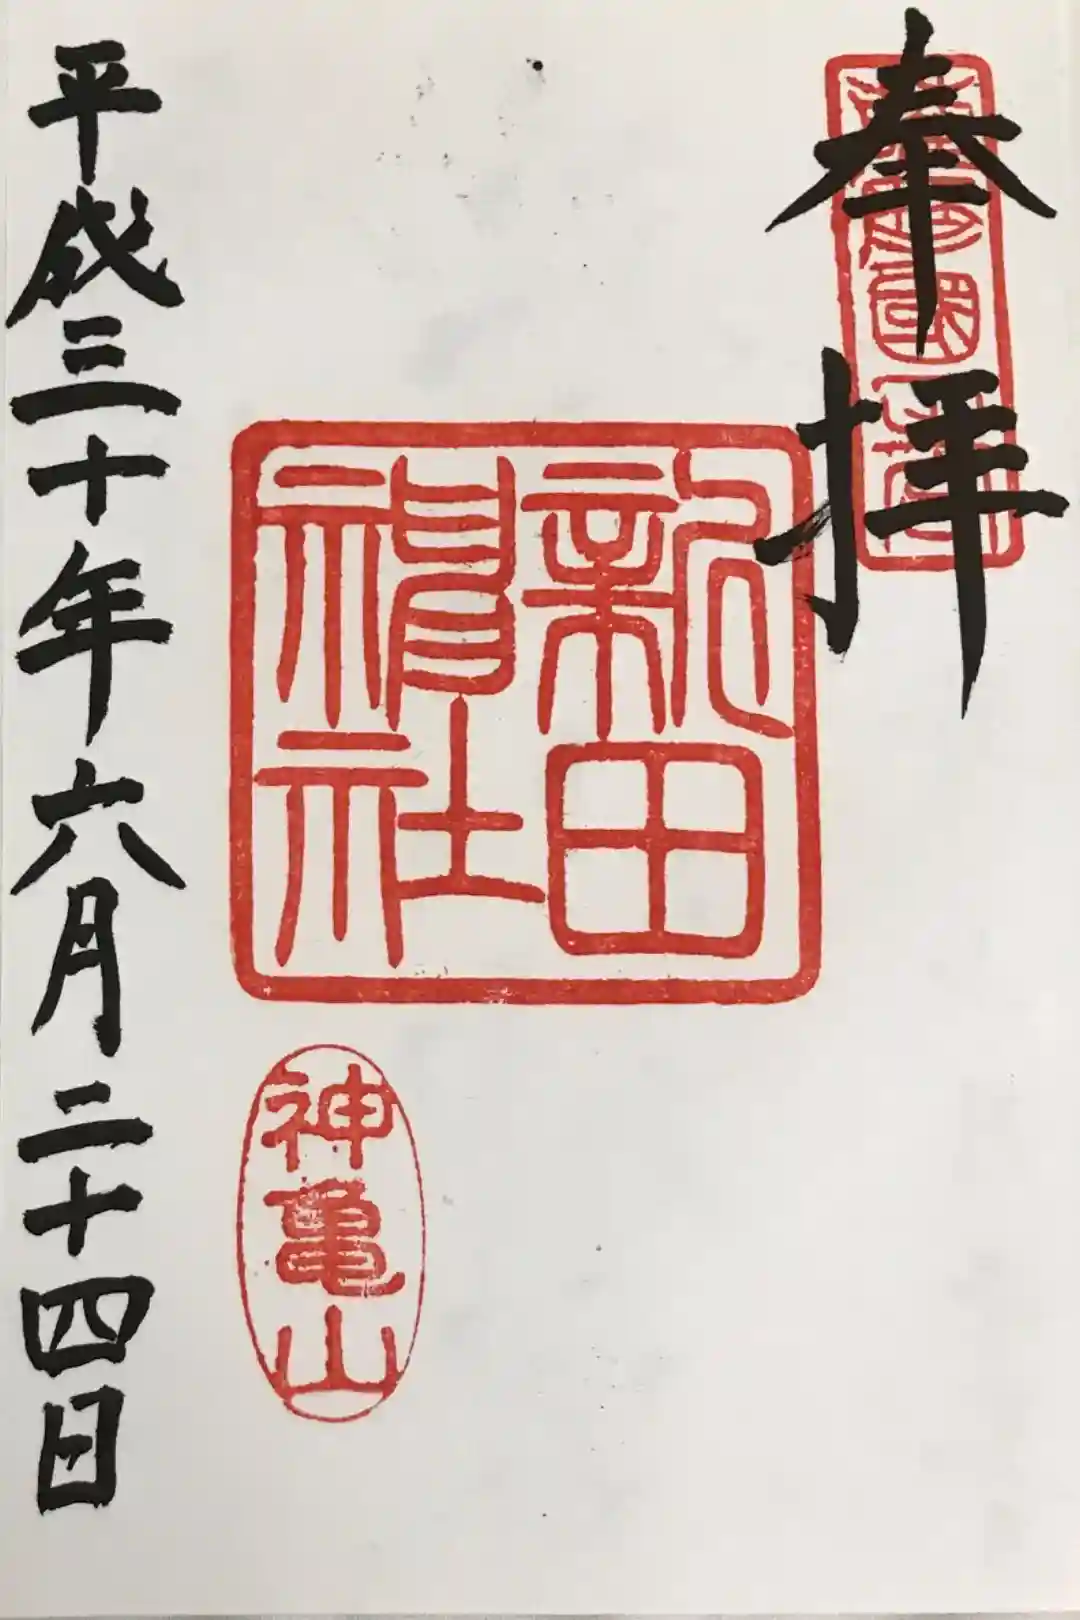 奉拝
薩摩國一宮
新田神社
神亀山
平成三十年六月二十四日